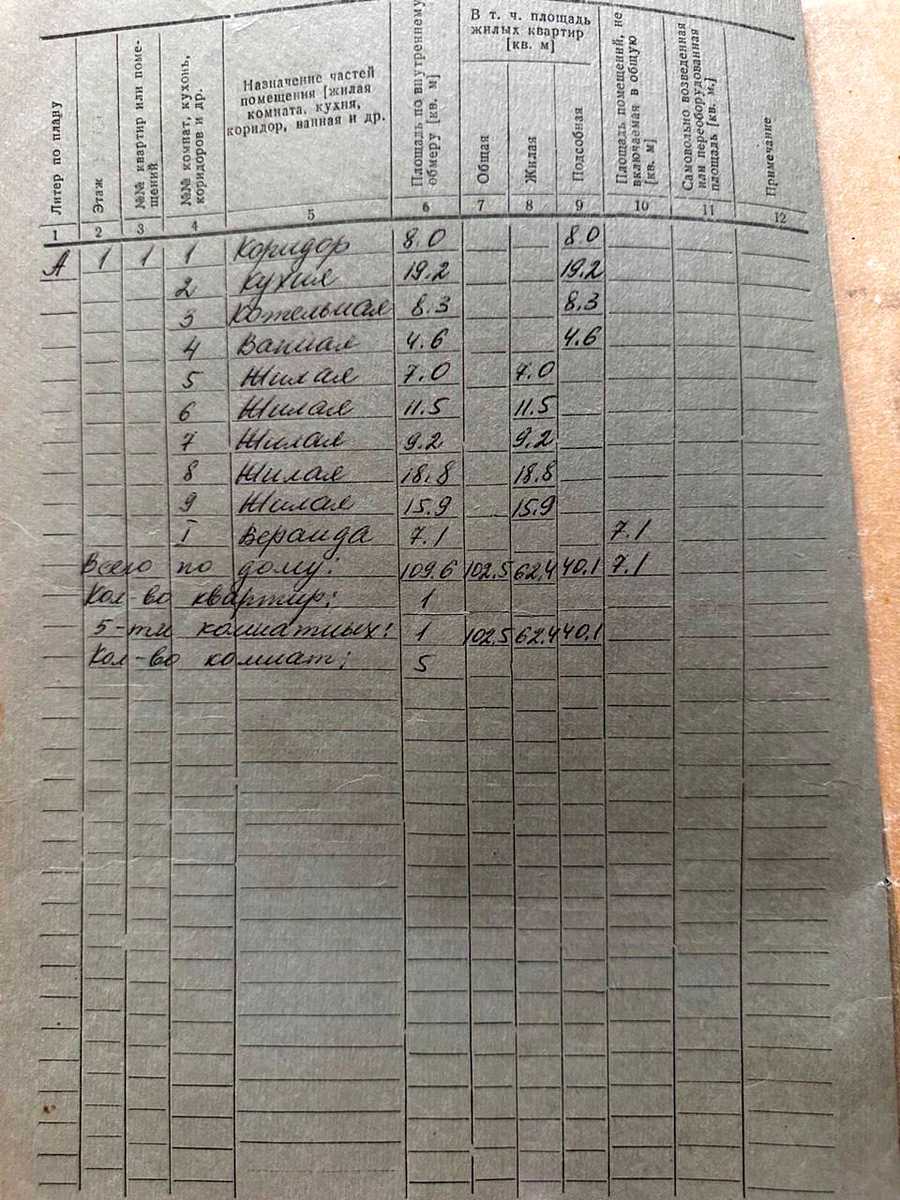 Литер по плану
Этаж
№№ квартир или поме-
щений
№№ комнат, кухонь,
коридоров и др.
Назначение частей
помещения [жилая
комната, кухня,
коридор, ванная и др.
Площадь по внутреннему
обмеру [кв. м]
В т. ч. площадь
жилых квартир
[кв. м]
Общая
Жилая
Подсобная
Площадь помещений, не
включаемая в общую
[кв. м]
Самовольно возведенная
или переоборудованная
площадь [кв. м]
Примечание
1 2 3 4 5 6 7 8 9 10 11 12
А 1 1 1 Коридор 8.0 8.0
2 Кухня 19.2 19.2
3 Котельная 8.3 8.3
4 Ванная 4.6 4.6
5 Жилая 7.0 7.0
6 Жилая 11.5 11.5
7 Жилая 9.2 9.2
8 Жилая 18.8 18.8
9 Жилая 15.9 15.9
I Веранда 7.1 7.1
Всего по дому: 109.6 102.5 62.4 40.1 7.1
Кол-во квартир: 1
5-ти комнатных: 1 102.5 62.4 40.1
Кол-во комнат: 5